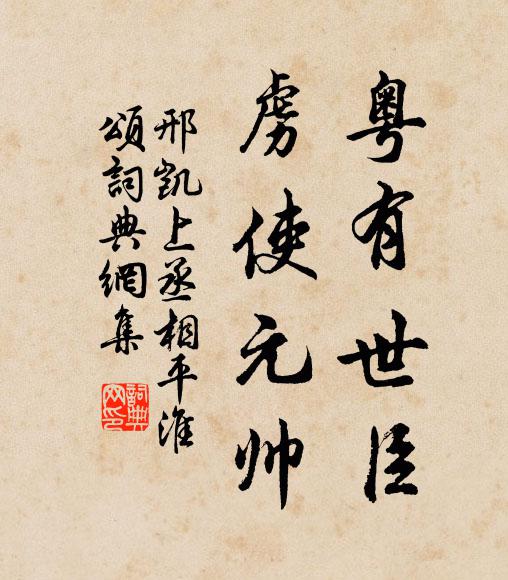 粤有世臣
虏使元帅
邢凯上丞相平淮
颂詞典網集
詞典网印